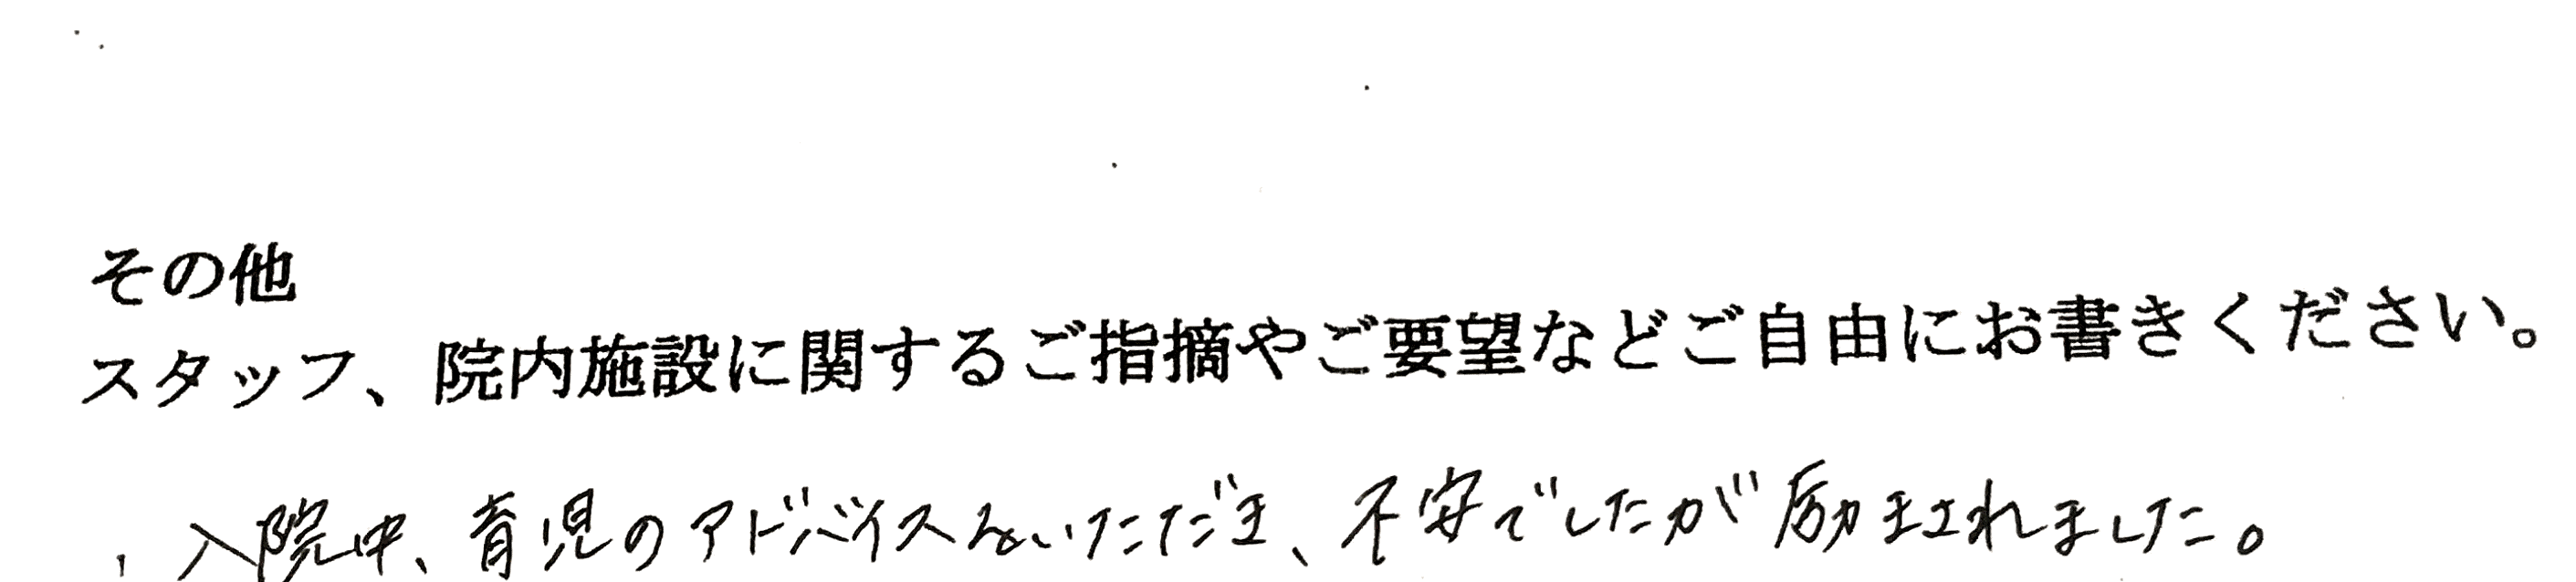 その他
スタッフ、院内施設に関するご指摘やご要望などご自由にお書きください。
入院中、育児のアドバイスをいただき、不安でしたが励まされました。